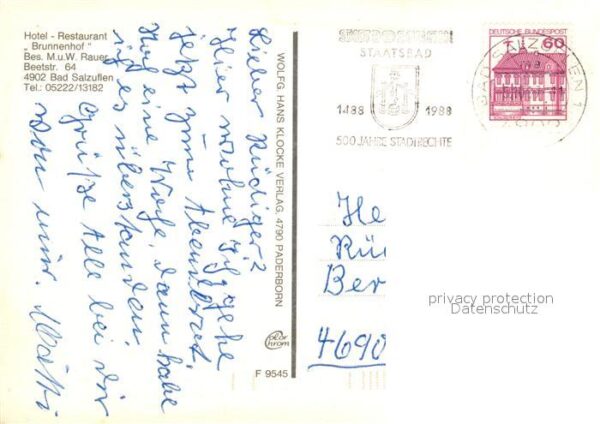 Hotel - Restaurant
„ Brunnenhof "
Bes. M.u.W. Rauer
Beetstr. 64
4902 Bad Salzuflen
Tel.: 05222/13182
Lieber Rüdiger!
Hier wohne ich, gehe
jetzt zum Abendbrot.
Noch eine Woche, dann habe
ich es überstanden.
Grüße Alle bei dir
von mir.
WOLFG. HANS KLOCKE VERLAG, 4790 PADERBORN
color
chrom
F 9545
STAATSBAD
1488 1988
500 JAHRE STADTRECHTE
DEUTSCHE BUNDESPOST
60
BAD SALZUFLEN 1
He
Rü
Ber
4690
privacy protection
Datenschutz